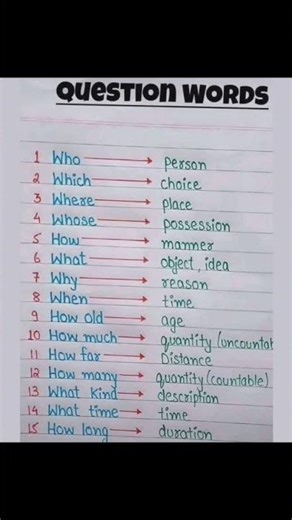 QUESTION WORDS
1 Who → person
2 Which → choice
3 Where → place
4 Whose → possession
5 How → manner
6 What → object, idea
7 Why → reason
8 When → time
9 How old → age
10 How much → quantity (uncountab
11 How far → Distance
12 How many → quantity (countable)
13 What kind → description
14 What time → time
15 How long → duration